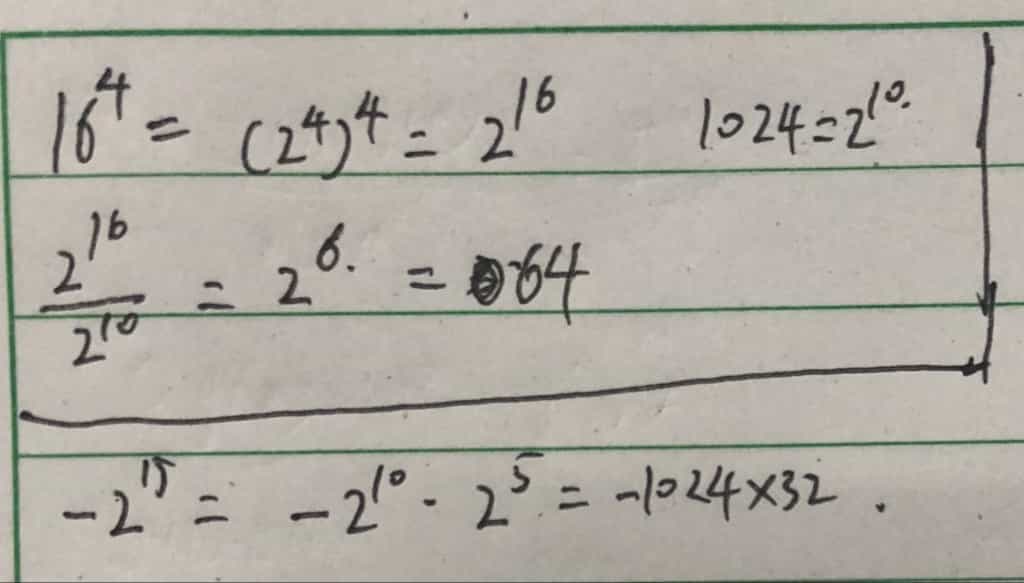 16⁴ = (2⁴)⁴ = 2¹⁶ 1024=2¹⁰.
2¹⁶/2¹⁰ = 2⁶. = 64
-2¹⁵ = -2¹⁰ · 2⁵ = -1024×32.